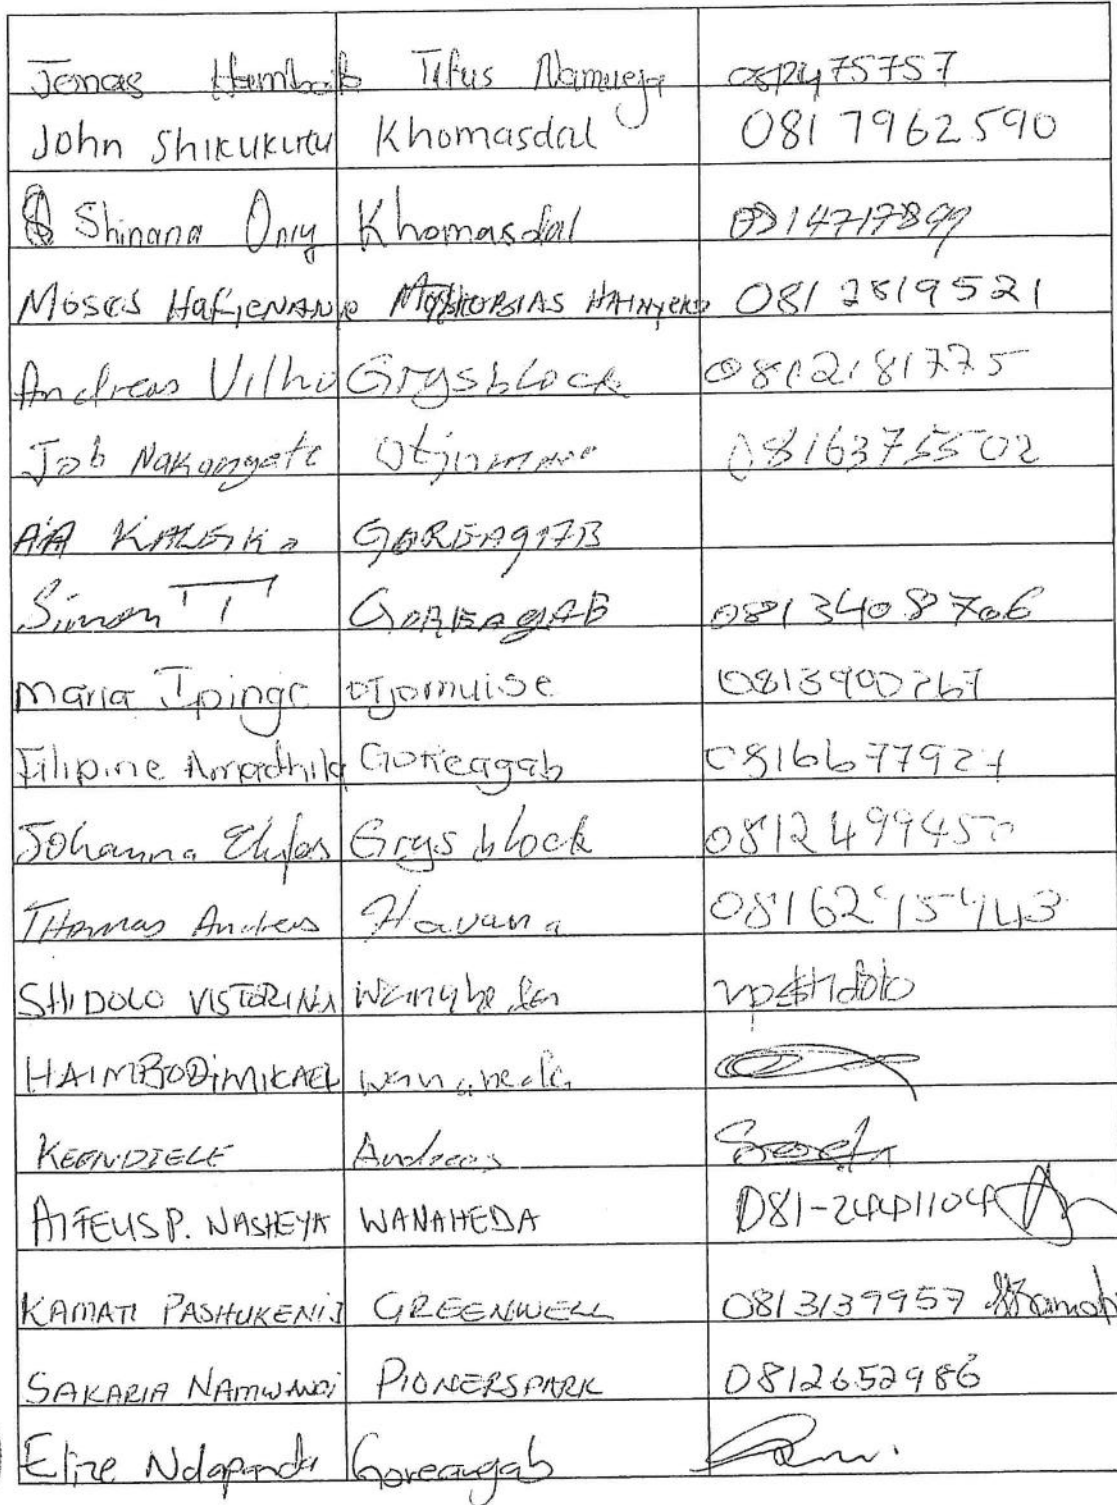 Jonas Titus Namueja
John Shikukutu Khomasdal 081 7962590
Shinana Khomasdal 0814717899
Moses HAINYEKO 081 2819521
Andreas Vilho Grysblock 0812181775
Job Nakangate 08163755502
KALEIKA GOREAGAB
Simon T GOREAGAB 0813408706
Maria Ipinge Otjomuise 0813900267
Filipine Amadhila Goreagab 0816677927
Johanna Grys block 0812499450
THomas Andreas Havana
SHIDOLO VISTORINA Wanaheda
HAIMBODI MIKAEL Wanaheda
KEENDJELE Andreas
P. NASHEYA WANAHEDA
KAMATI PASHUKENI GREENWELL 0813139957
SAKARIA PIONERSPARK 0812652986
Elize Ndapanda Goreangab